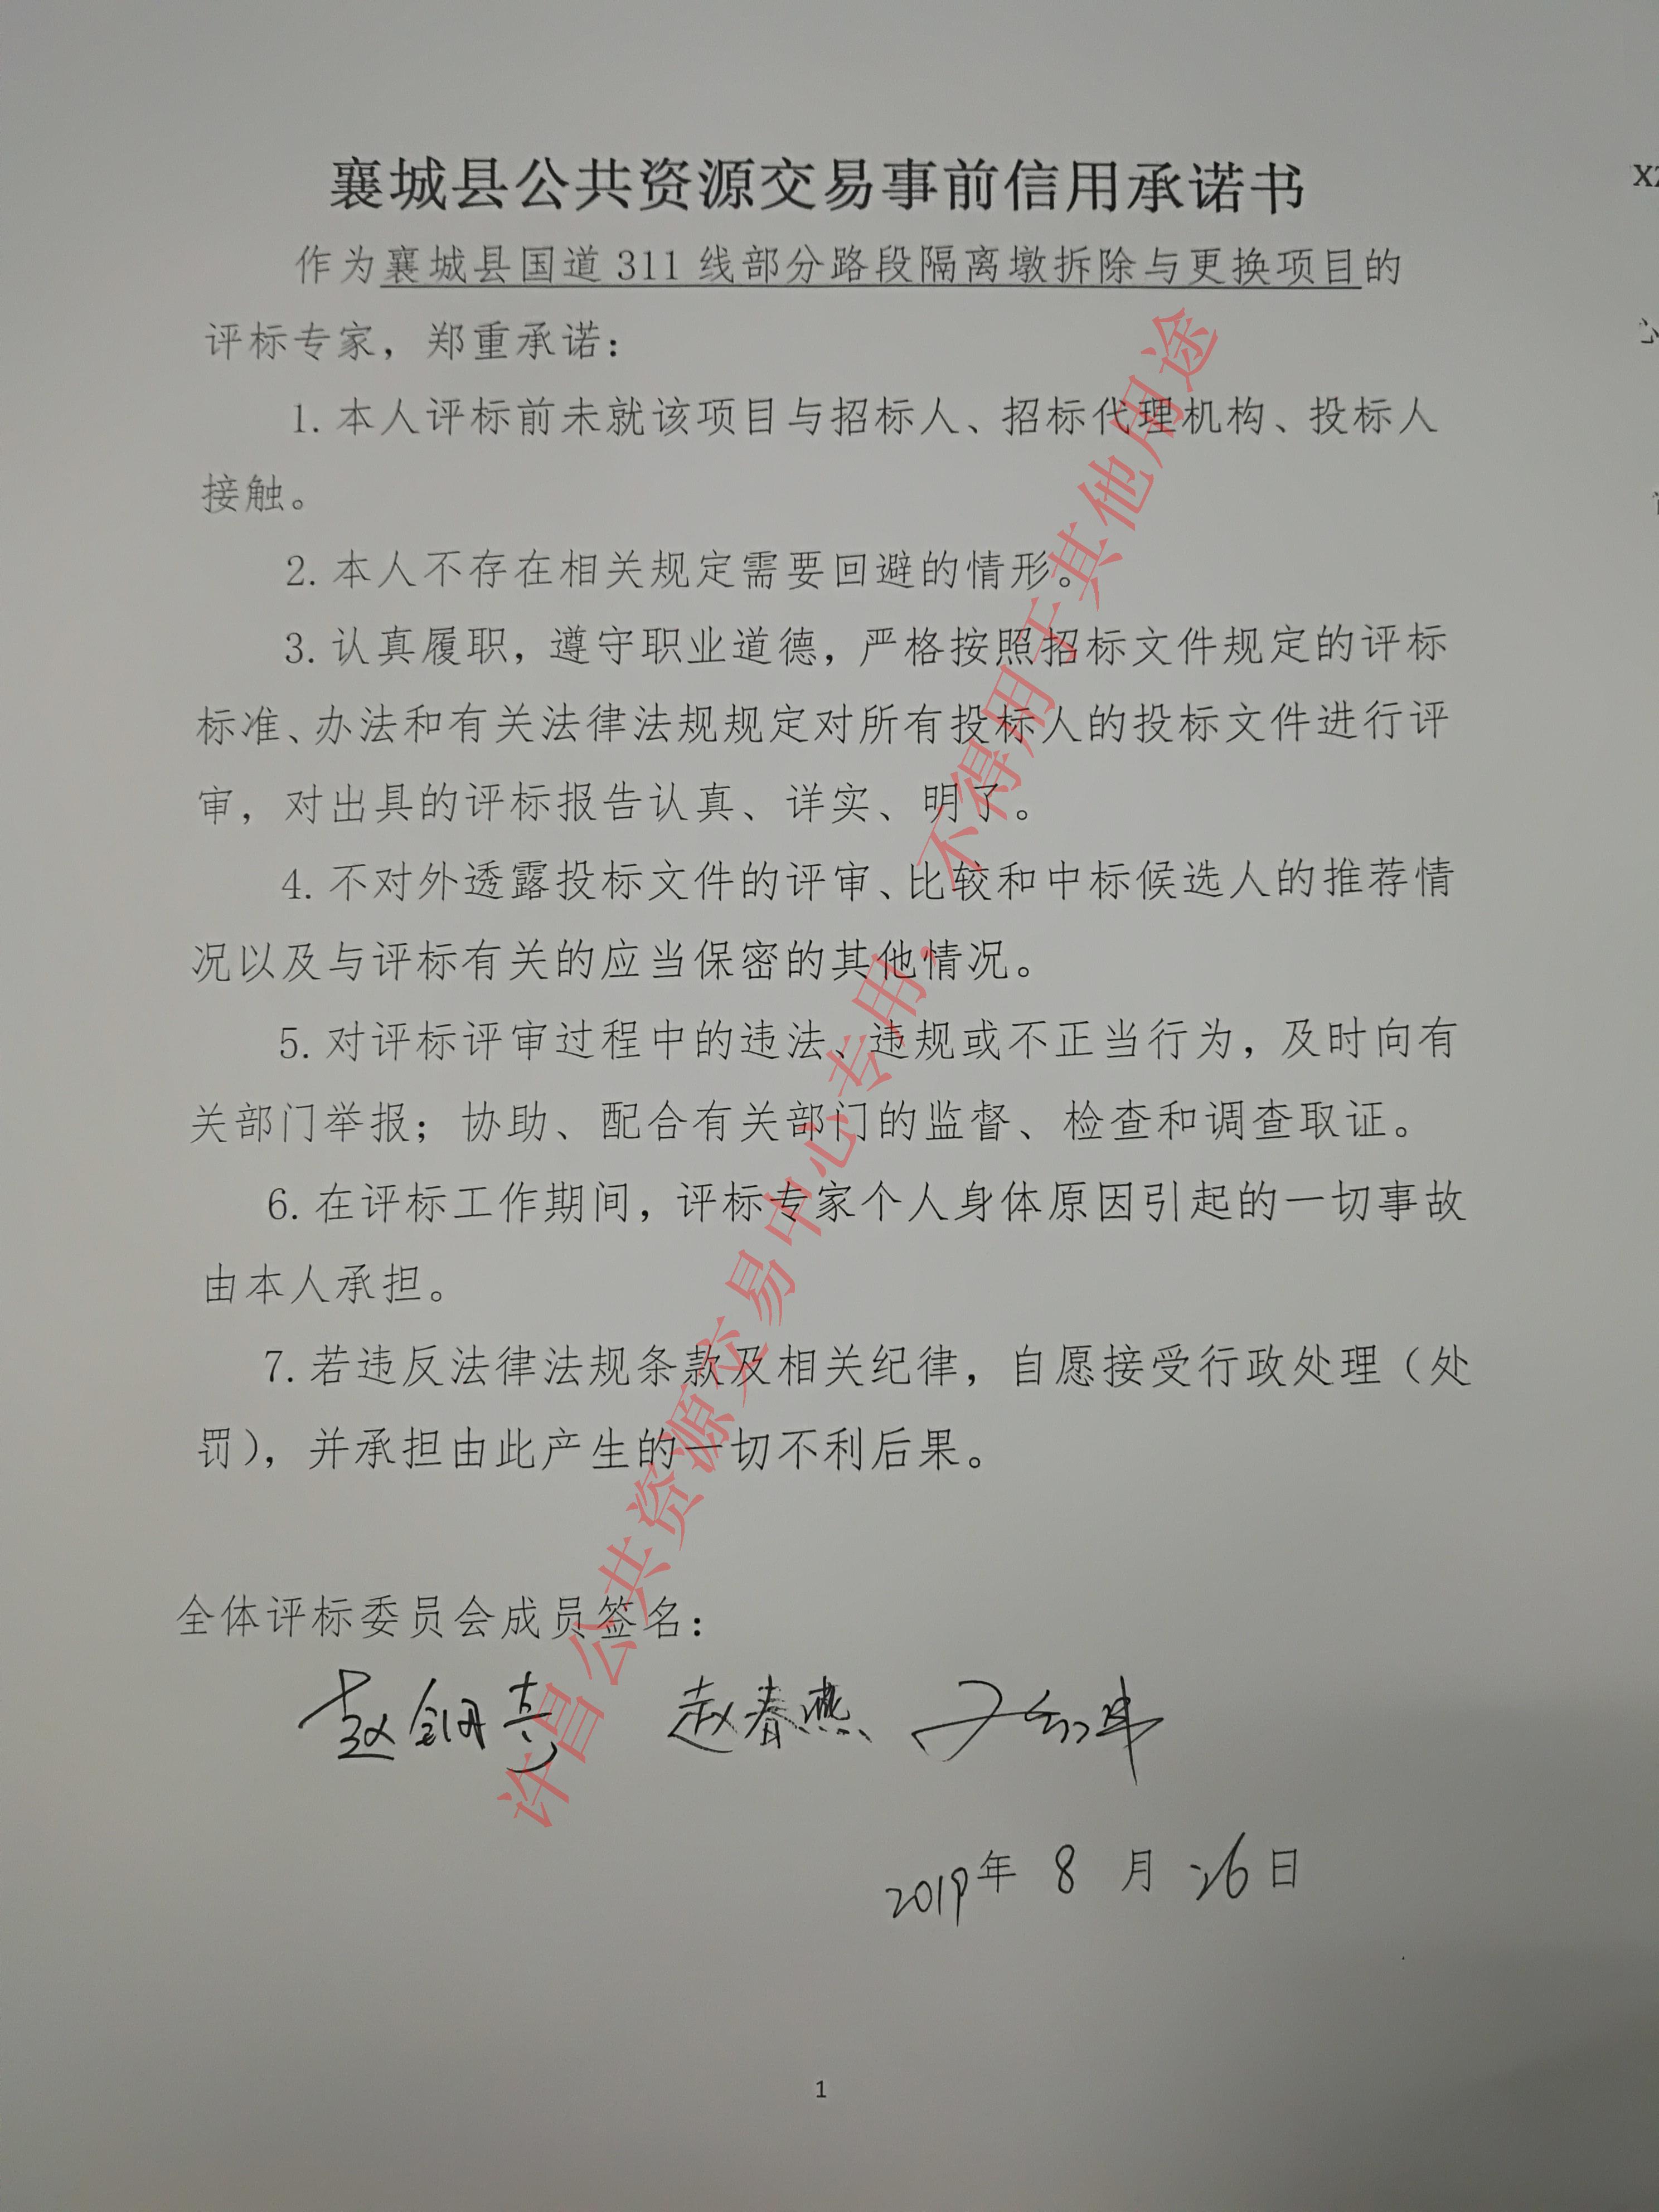 襄城县公共资源交易事前信用承诺书
作为襄城县国道 311 线部分路段隔离墩拆除与更换项目的
评标专家，郑重承诺：
1. 本人评标前未就该项目与招标人、招标代理机构、投标人
接触。
2. 本人不存在相关规定需要回避的情形。
3. 认真履职，遵守职业道德，严格按照招标文件规定的评标
标准、办法和有关法律法规规定对所有投标人的投标文件进行评
审，对出具的评标报告认真、详实、明了。
4. 不对外透露投标文件的评审、比较和中标候选人的推荐情
况以及与评标有关的应当保密的其他情况。
5. 对评标评审过程中的违法、违规或不正当行为，及时向有
关部门举报；协助、配合有关部门的监督、检查和调查取证。
6. 在评标工作期间，评标专家个人身体原因引起的一切事故
由本人承担。
7. 若违反法律法规条款及相关纪律，自愿接受行政处理（处
罚），并承担由此产生的一切不利后果。
全体评标委员会成员签名：
赵春燕
2019年 8 月 26日
1
许昌公共资源交易中心专用，不得用于其他用途